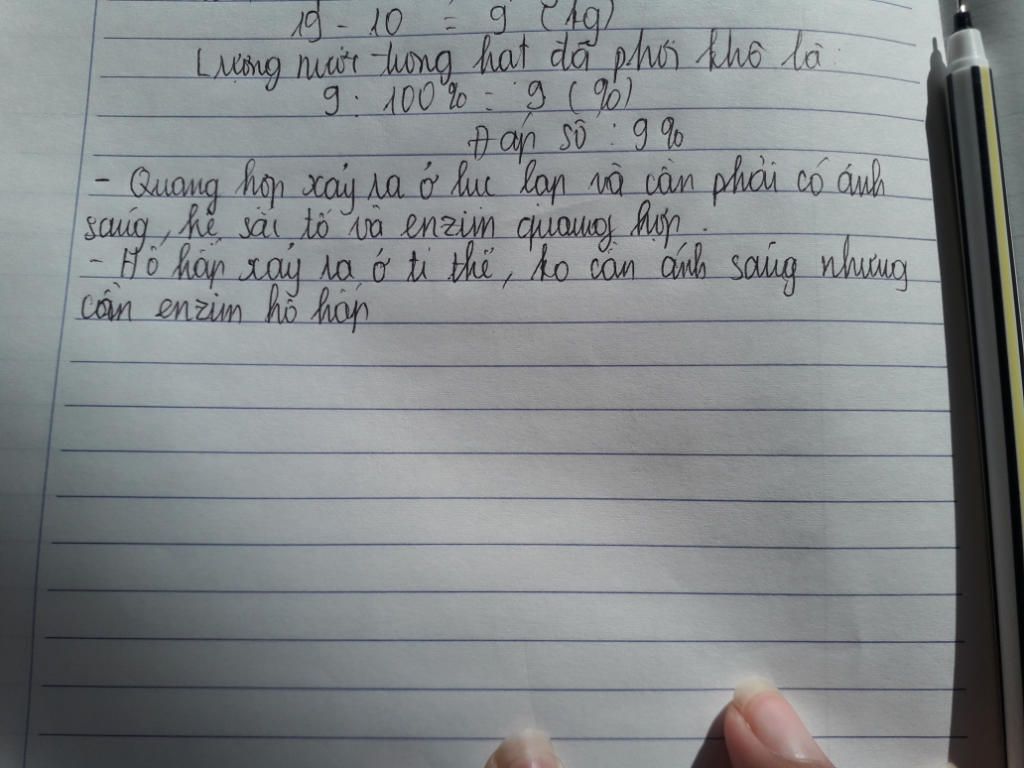 19 - 10 = 9 (kg)
Lượng nước trong hạt đã phơi khô là:
9 : 100% = 9 (%)
Đáp số : 9%
- Quang hợp xảy ra ở lục lạp và cần phải có ánh
sáng, hệ sắc tố và enzim quang hợp.
- Hô hấp xảy ra ở ti thể, ko cần ánh sáng nhưng
cần enzim hô hấp